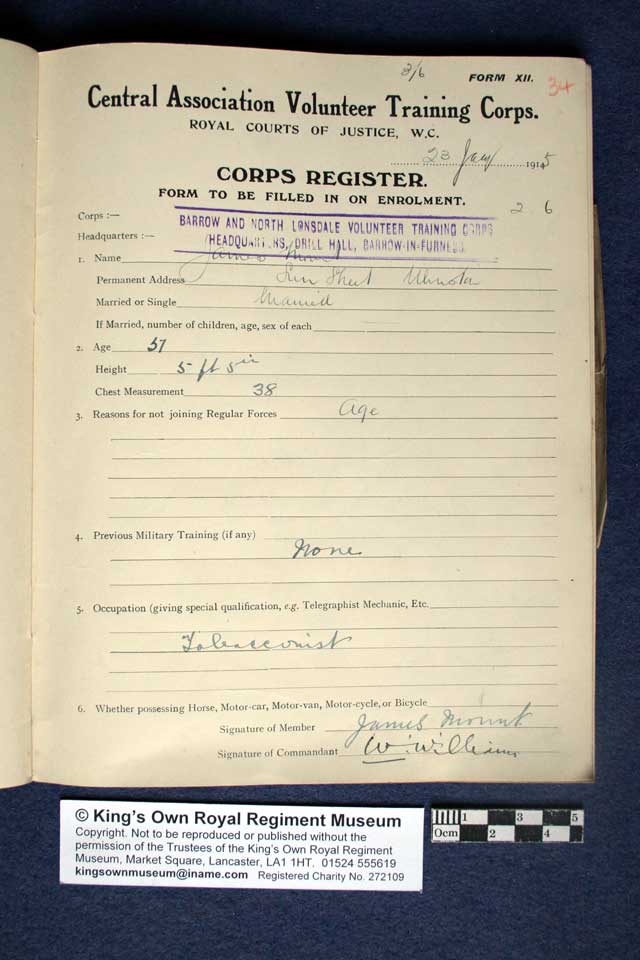 3/6 FORM XII. 34
Central Association Volunteer Training Corps.
ROYAL COURTS OF JUSTICE, W.C.
23 Jany 1915
CORPS REGISTER.
FORM TO BE FILLED IN ON ENROLMENT.
2 6
Corps :—
BARROW AND NORTH LONSDALE VOLUNTEER TRAINING CORPS
Headquarters :—
HEADQUARTERS, DRILL HALL, BARROW-IN-FURNESS.
1. Name James Mount
Permanent Address Sun Street Ulverston
Married or Single Married
If Married, number of children, age, sex of each
2. Age 51
Height 5 ft 5 in
Chest Measurement 38
3. Reasons for not joining Regular Forces Age
4. Previous Military Training (if any)
None
5. Occupation (giving special qualification, e.g. Telegraphist Mechanic, Etc.
Tobacconist
6. Whether possessing Horse, Motor-car, Motor-van, Motor-cycle, or Bicycle
Signature of Member James Mount
Signature of Commandant W. Williams
© King's Own Royal Regiment Museum
Copyright. Not to be reproduced or published without the
permission of the Trustees of the King's Own Royal Regiment
Museum, Market Square, Lancaster, LA1 1HT. 01524 555619
kingsownmuseum@iname.com Registered Charity No. 272109
1 3 5
0cm 2 4